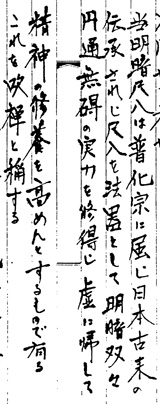 当明暗尺八は普化宗に属し日本古来の
伝承されし尺八を法器として明暗双々
円通無碍の実力を修得し虚に帰して
精神の修養を高めんとするもので有る
これを吹禅と稱する